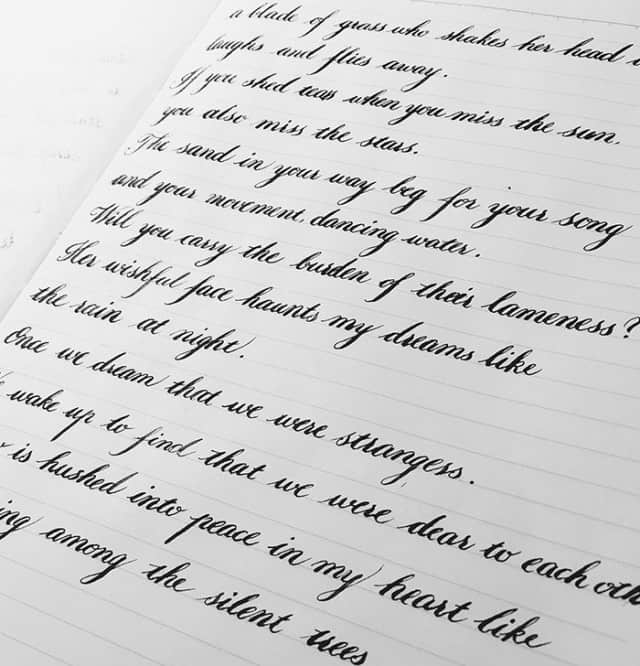 a blade of grass who shakes her head
laughs and flies away.
If you shed teas when you miss the sun,
you also miss the stars.
The sand in your way beg for your song
and your movement, dancing water.
Will you carry the burden of their lameness?
Her wishful face haunts my dreams like
the rain at night.
Once we dream that we were strangers.
wake up to find that we were dear to each
is hushed into peace in my heart like
among the silent trees